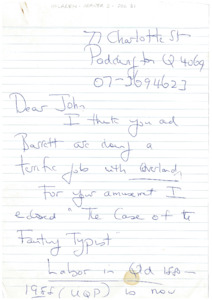 77 Charlotte St
Paddington Q 4069
07-3694623
Dear John
I think you ad
Barrett are doing a
terrific job with Overland.
For your amusement I
enclosed "The Case of the
Fainting Typist"
Labor in Qld
(UQP) is now